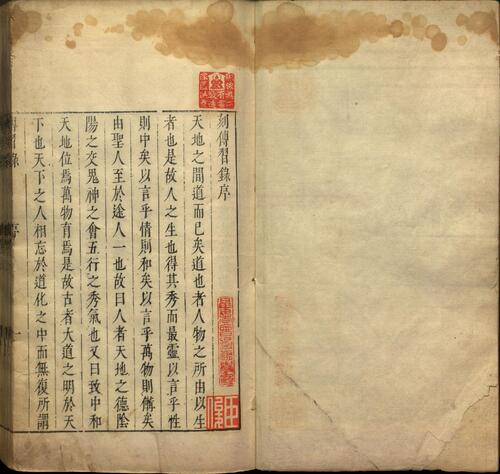 刻傳習錄序
天地之間道而已矣道也者人物之所由以生
者也是故人之生也得其秀而最靈以言乎性
則中矣以言乎情則和矣以言乎萬物則備矣
由聖人至於途人一也故曰人者天地之德陰
陽之交鬼神之會五行之秀氣也又曰致中和
天地位焉萬物育焉是故古者大道之明於天
下也天下之人相忘於道化之中而無復所謂
序